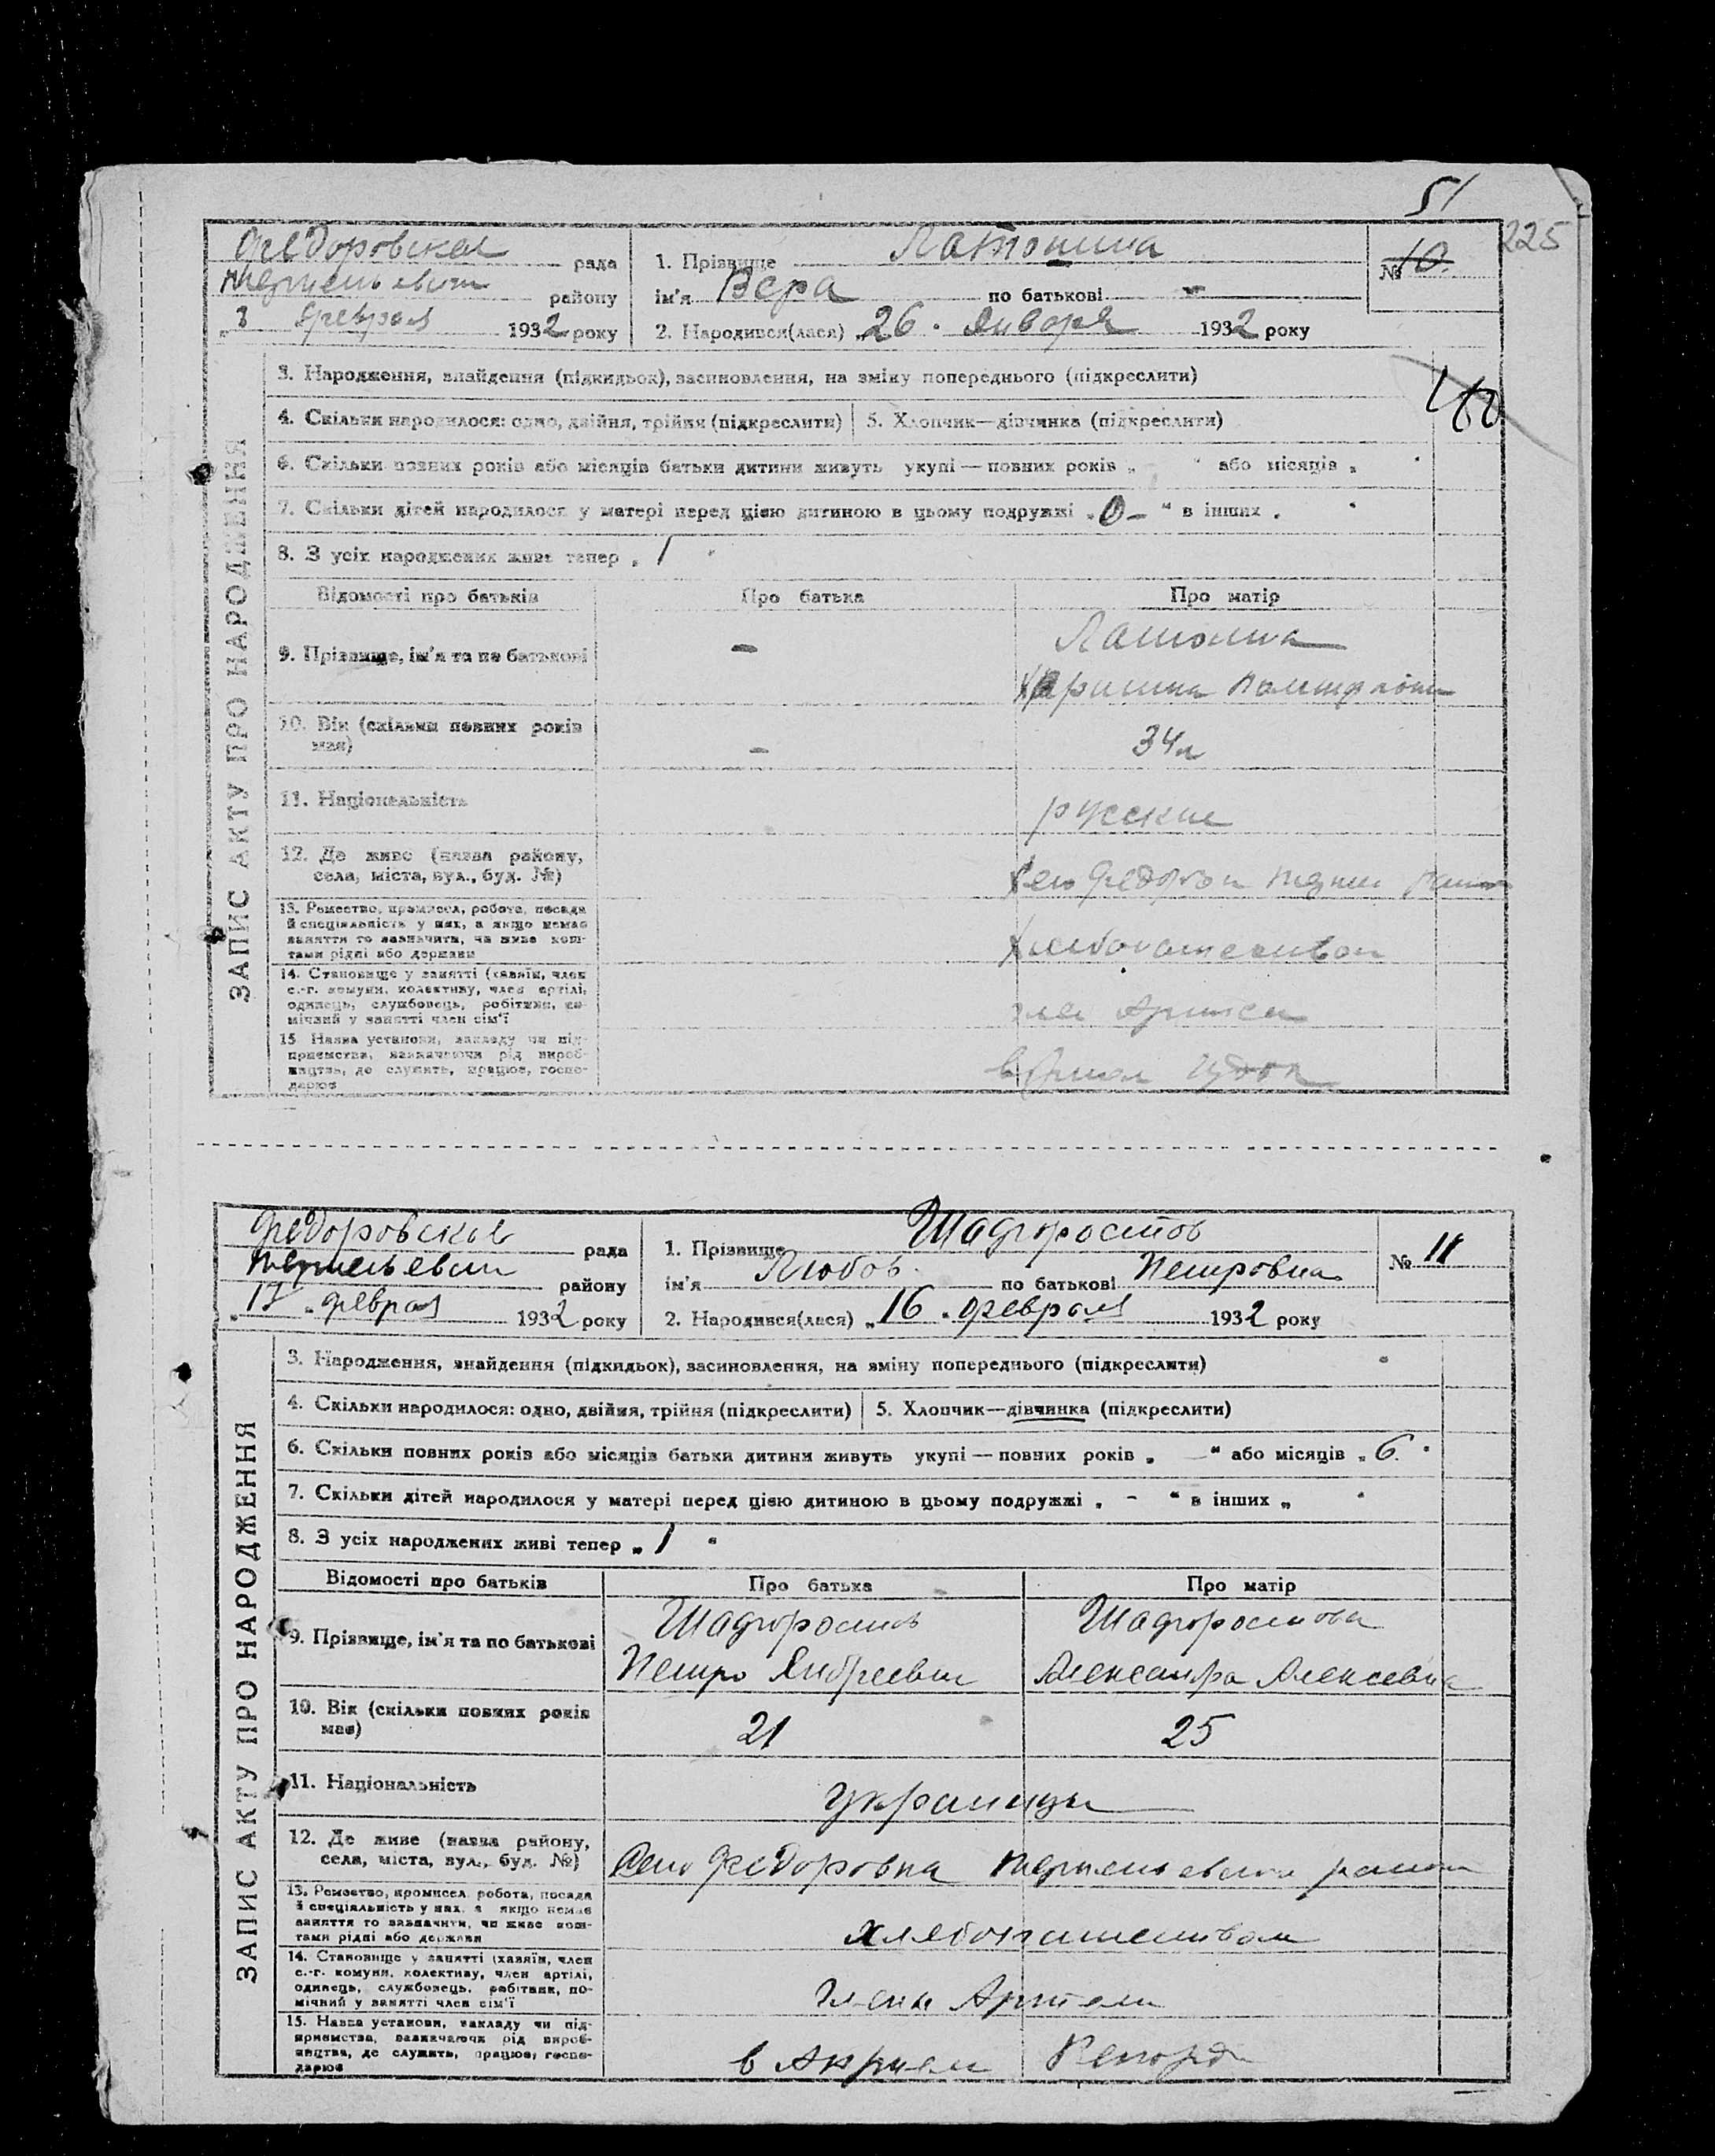 51
225
Федоровская рада
району
"3 феврал 1932 року
1. Прізвище Латонина
ім'я Вера по батькові -
2. Народився(лася) "26" Января 1932 року
№ 10.
ЗАПИС АКТУ ПРО НАРОДЖЕННЯ
3. Народження, знайдення (підкидьок), засиновлення, на зміну попереднього (підкреслити)
4. Скільки народилося: одно, двійня, трійня (підкреслити) 5. Хлопчик—дівчинка (підкреслити)
6. Скільки повних років або місяців батьки дитини живуть укупі — повних років „ “ або місяців „
7. Скільки дітей народилося у матері перед цією дитиною в цьому подружжі „0-“ в інших „
8. З усіх народжених живе тепер „1“
Відомості про батьків Про батька Про матір
9. Прізвище, ім'я та по батькові - Латонина
10. Вік (скільки повних років має) - 34 л
11. Національність русские
12. Де живе (назва району, села, міста, вул., буд. №) Село Федоровка
13. Ремество, промисел, робота, посада
й спеціяльність у них, а якщо немає
заняття то зазначити, чи живе кош-
тами рідні або держави
Хлебопашеством
14. Становище у занятті (хазяїн, член
с.-г. комуни, колективу, член артілі,
одинець, службовець, робітник, по-
мічний у занятті член сім'ї
член Артели
15 Назва установи, закладу чи під-
приємства, зазначаючи рід вироб-
ництва, де служить, працює, госпо-
дарює
Федоровская рада
району
"17" феврал 1932 року
1. Прізвище Шадроростов
ім'я Любов по батькові Петровна
2. Народився(лася) „16" феврал 1932 року
№ 11
ЗАПИС АКТУ ПРО НАРОДЖЕННЯ
3. Народження, знайдення (підкидьок), засиновлення, на зміну попереднього (підкреслити)
4. Скільки народилося: одно, двійня, трійня (підкреслити) 5. Хлопчик—дівчинка (підкреслити)
6. Скільки повних років або місяців батьки дитини живуть укупі — повних років „ —“ або місяців „6“
7. Скільки дітей народилося у матері перед цією дитиною в цьому подружжі „ - “ в інших „
8. З усіх народжених живі тепер „1“
Відомості про батьків Про батька Про матір
9. Прізвище, ім'я та по батькові
Шадроростов Шадроростова
Петро Андреевич Александра Алексевна
10. Вік (скільки повних років має) 21 25
11. Національність украинцы
12. Де живе (назва району, села, міста, вул., буд. №) Село Федоровка
13. Ремество, промисел, робота, посада
й спеціяльність у них, а якщо немає
заняття то зазначити, чи живе кош-
тами рідні або держави
хлебопашеством
14. Становище у занятті (хазяїн, член
с.-г. комуни, колективу, член артілі,
одинець, службовець, робітник, по-
мічний у занятті член сім'ї
члены Артели
15. Назва установи, закладу чи під-
приємства, зазначаючи рід вироб-
ництва, де служить, працює, госпо-
дарює
в Рекорд